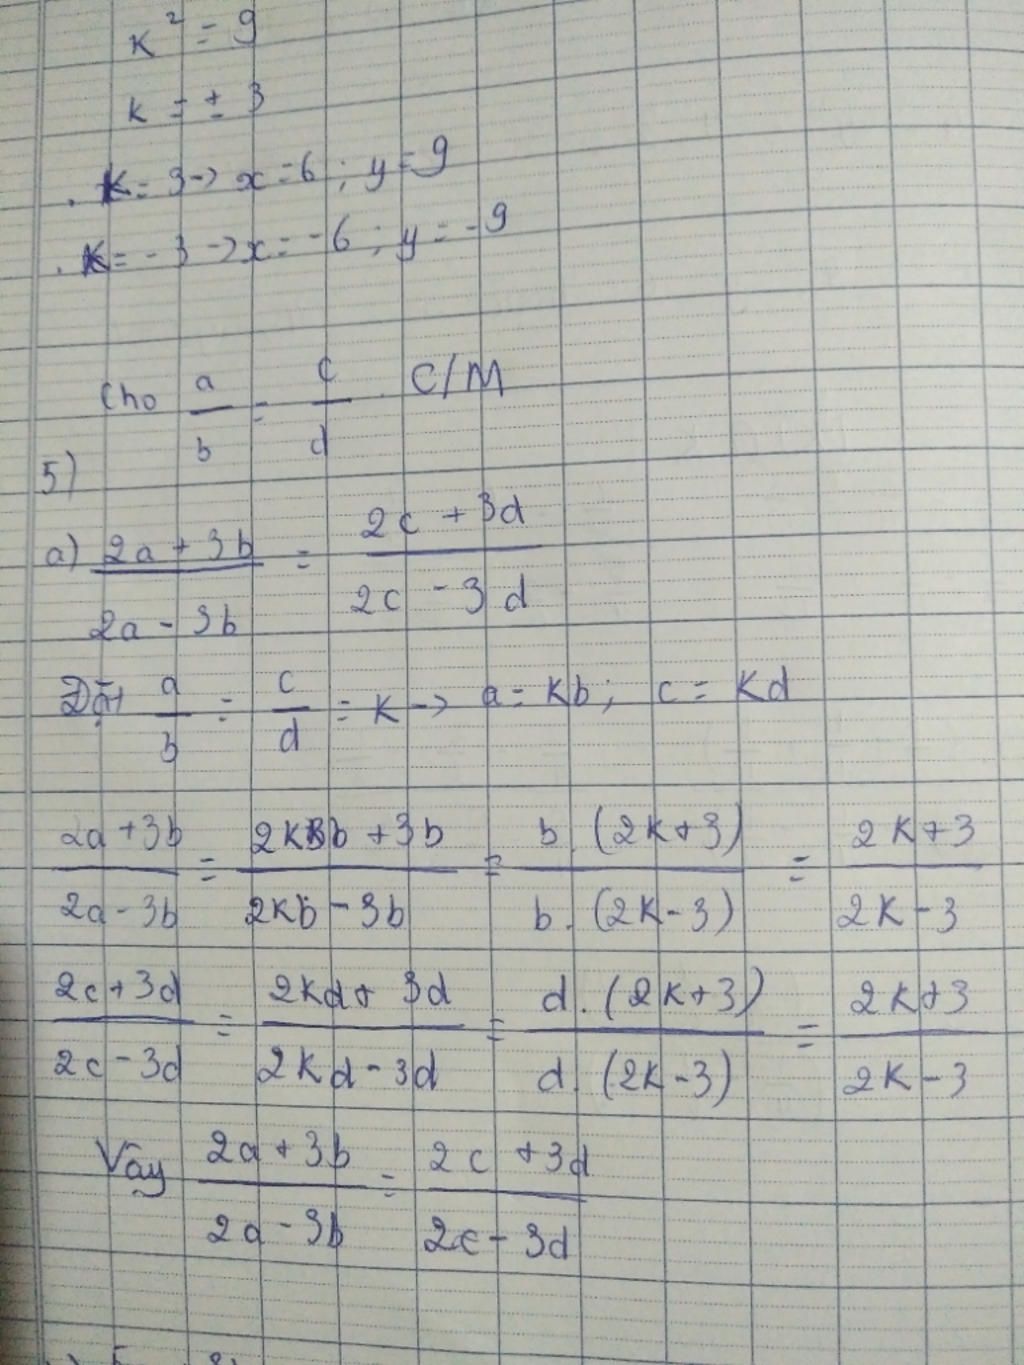 k² = 9
k = ± 3
. K = 3 -> x = 6 ; y = 9
. K = - 3 -> x = - 6 ; y = - 9
Cho a/b = c/d . C/M
5)
a) (2a + 3b)/(2a - 3b) = (2c + 3d)/(2c - 3d)
Đặt a/b = c/d = K -> a = Kb ; c = Kd
(2a + 3b)/(2a - 3b) = (2kb + 3b)/(2Kb - 3b) = (b . (2K + 3))/(b . (2K - 3)) = (2K + 3)/(2K - 3)
(2c + 3d)/(2c - 3d) = (2Kd + 3d)/(2Kd - 3d) = (d . (2K + 3))/(d . (2K - 3)) = (2K + 3)/(2K - 3)
Vậy (2a + 3b)/(2a - 3b) = (2c + 3d)/(2c - 3d)